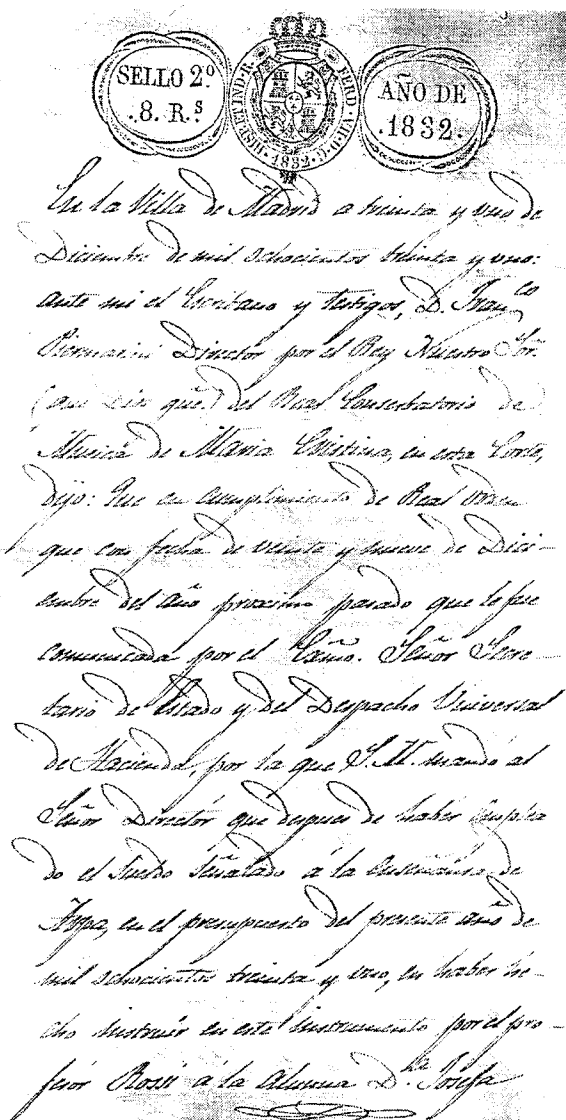 SELLO 2º
.8. R.s
HISP. ET IND. R. FERD. VII. D. G. 1832.
AÑO DE
.1832.
En la Villa de Madrid a treinta y uno de
Diciembre de mil ochocientos treinta y uno:
ante mi el Escribano y testigos, D. Fran.co
Piermarini Director por el Rey Nuestro Sor.
(que Dios gue.) del Real Conserbatorio de
Musica de Maria Cristina, en esta Corte,
dijo: Que en cumplimiento de Real orden
que con fecha de veinte y nueve de Dici-
embre del año proximo pasado que le fue
comunicada por el Exmo. Señor Secre-
tario de Estado y del Despacho Universal
de Hacienda, por la que S. M. mandó al
Señor Director que despues de haber emplea
do el sueldo señalado á la enseñanza de
Arpa, en el presupuesto del presente año de
mil ochocientos treinta y uno, en haber he-
cho instruir en este instrumento por el pro-
fesor Rossi a la Alumna D.ña Josefa